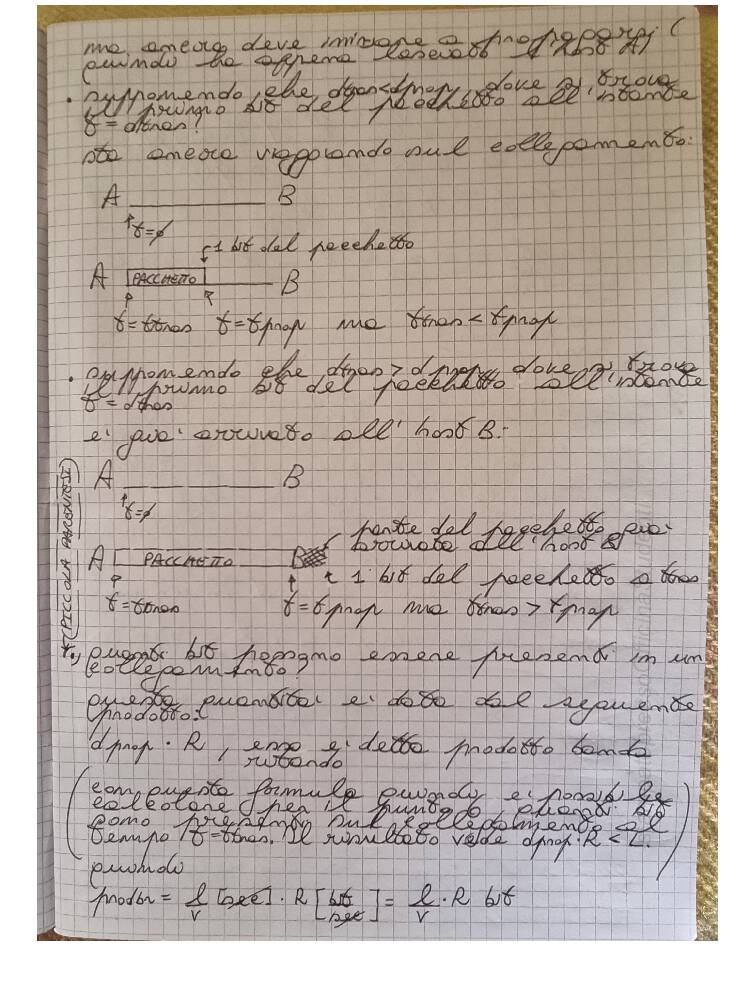 ma ancora deve iniziare a propagarsi (
quindi ha appena lasciato l'host A)
• supponendo che dtras<dprop, dove si trova
il primo bit del pacchetto all'istante
t=dtras?
sta ancora viaggiando sul collegamento:
A B
t=0
1 bit del pacchetto
A PACCHETTO B
t=ttras t=tprop ma ttras<tprop
• supponendo che dtras>dprop, dove si trova
il primo bit del pacchetto all'istante
t=dtras
e' gia' arrivato all'host B:
A B
t=0
parte del pacchetto gia'
arrivata all'host B
A PACCHETTO B
1 bit del pacchetto a ttras
t=ttras t=tprop ma ttras>tprop
(PICCOLA PARENTESI)
quanti bit possono essere presenti in un
collegamento?
questa quantita' e' data dal seguente
prodotto:
dprop·R, esso e' detto prodotto banda
ritardo
(con questa formula quindi e' possibile
calcolare, per il punto, quanti bit
sono presenti sul collegamento al
tempo t=ttras. Il risultato vale dprop·R<L.)
quindi
prodbr = l/v [sec] · R [bit/sec] = l/v · R bit